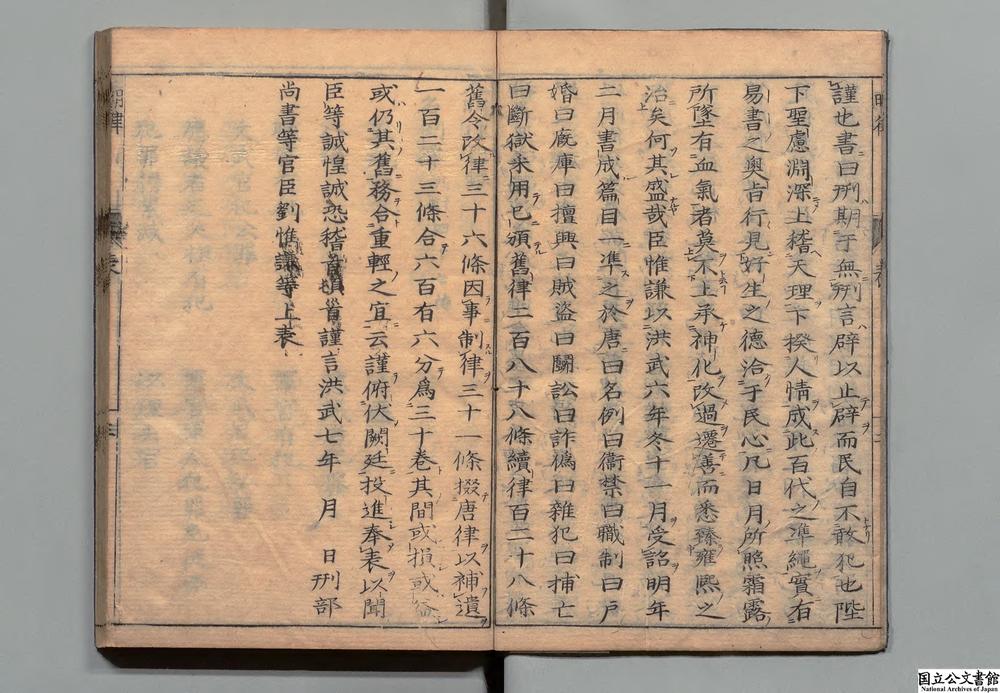 謹也書曰刑期于無刑言辟以止辟而民自不敢犯也陛
下聖慮淵深上稽天理下揆人情成此百代之準繩實有
易書之奥旨行見好生之德洽于民心凡日月所照霜露
所墜有血氣者莫不上承神化改過遷善而悉臻雍熙之
治矣何其盛哉臣惟謙以洪武六年冬十一月受詔明年
二月書成篇目一準之於唐曰名例曰衞禁曰職制曰戸
婚曰厩庫曰擅興曰賊盗曰鬬訟曰詐偽曰雜犯曰捕亡
曰斷獄釆用已頒舊律二百八十八條續律百二十八條
舊令改律三十六條因事制律三十一條掇唐律以補遺
一百二十三條合六百有六分爲三十巻其間或損或益
或仍其舊務合重輕之宜云謹俯伏闕廷投進奉表以聞
臣等誠惶誠恐稽首頓首謹言洪武七年　月　日刑部
尚書等官臣劉惟謙等上表
明律
表
国立公文書館
National Archives of Japan